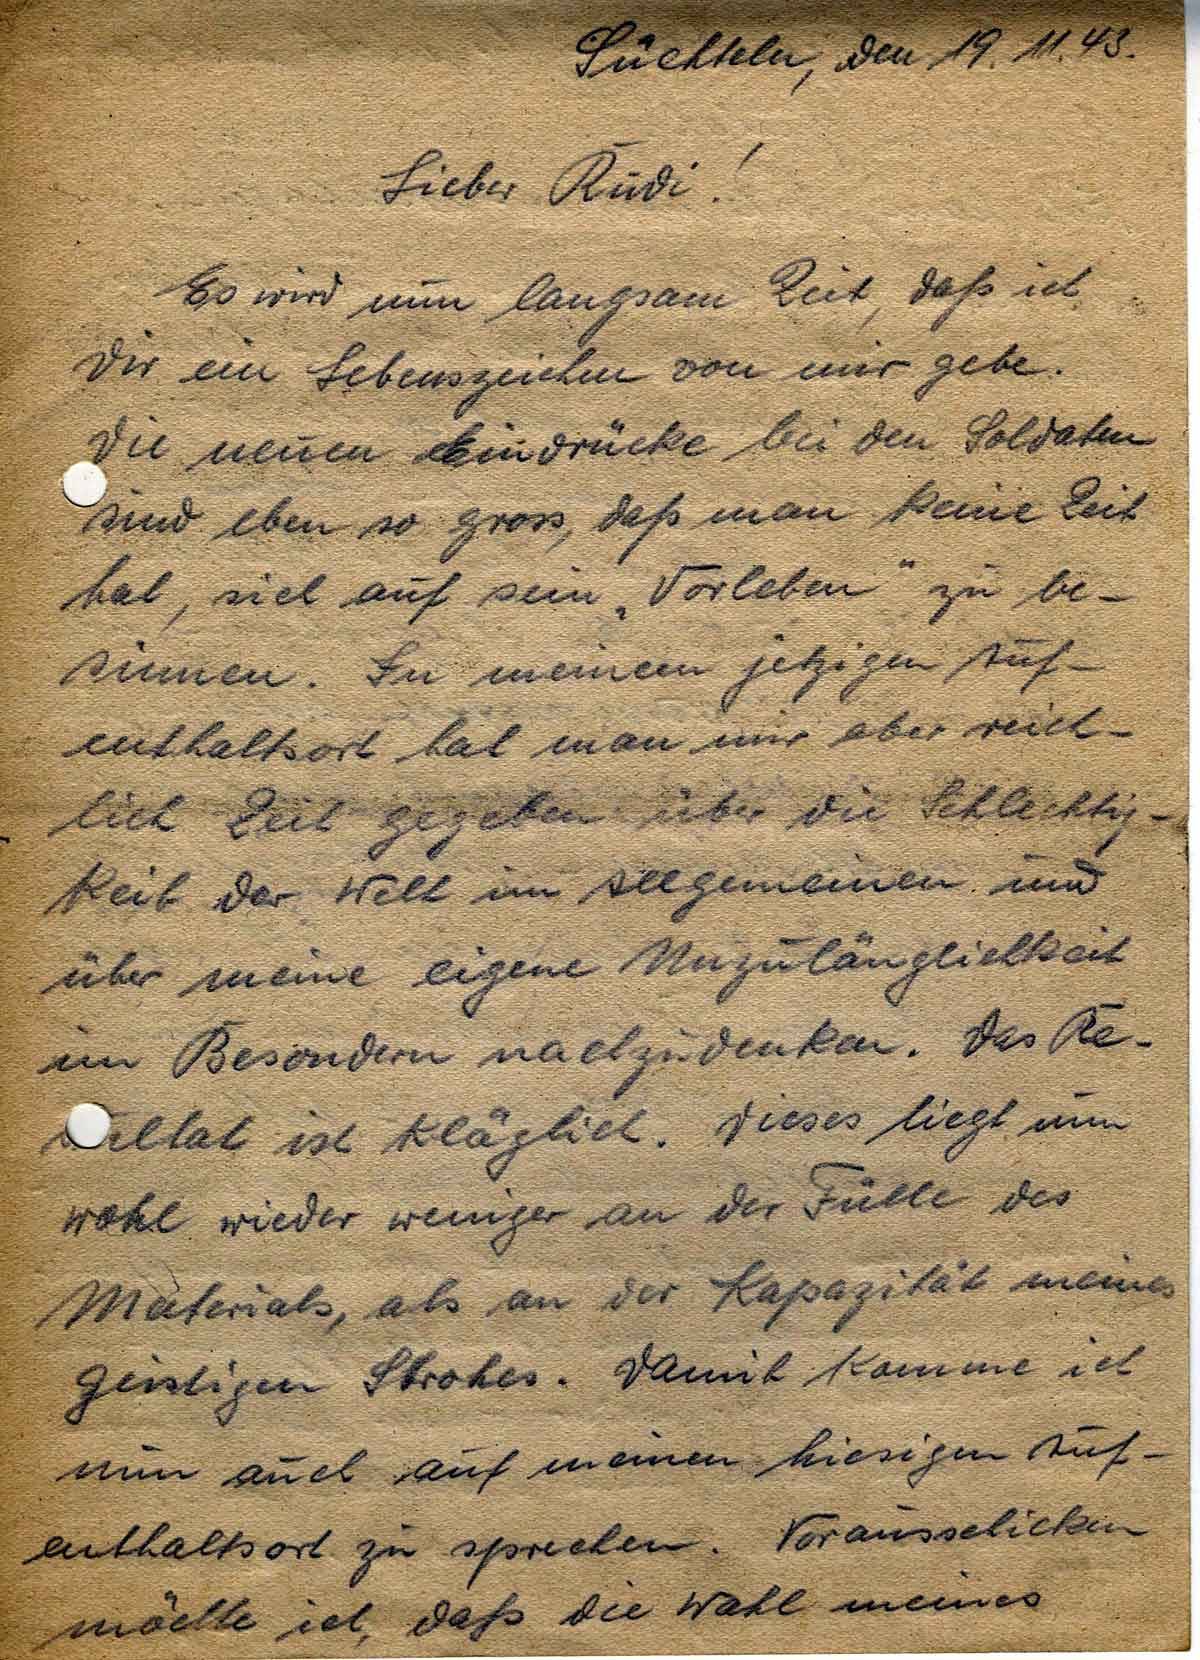 Süchteln, den 19.11.43.
Lieber Rudi!
Es wird nun langsam Zeit, daß ich
Dir ein Lebenszeichen von mir gebe.
Die neuen Eindrücke bei den Soldaten
sind eben so gross, daß man keine Zeit
hat, sich auf sein „Vorleben" zu be-
sinnen. In meinem jetzigen Auf-
enthaltsort hat man mir aber reich-
lich Zeit gegeben über die Schlechtig-
keit der Welt im allgemeinen und
über meine eigene Unzulänglichkeit
im Besondern nachzudenken. Das Re-
sultat ist kläglich. Dieses liegt nun
wohl wieder weniger an der Fülle des
Materials, als an der Kapazität meines
geistigen Strohes. Damit komme ich
nun auch auf meinen hiesigen Auf-
enthaltsort zu sprechen. Vorausschicken
möchte ich, daß die Wahl meines